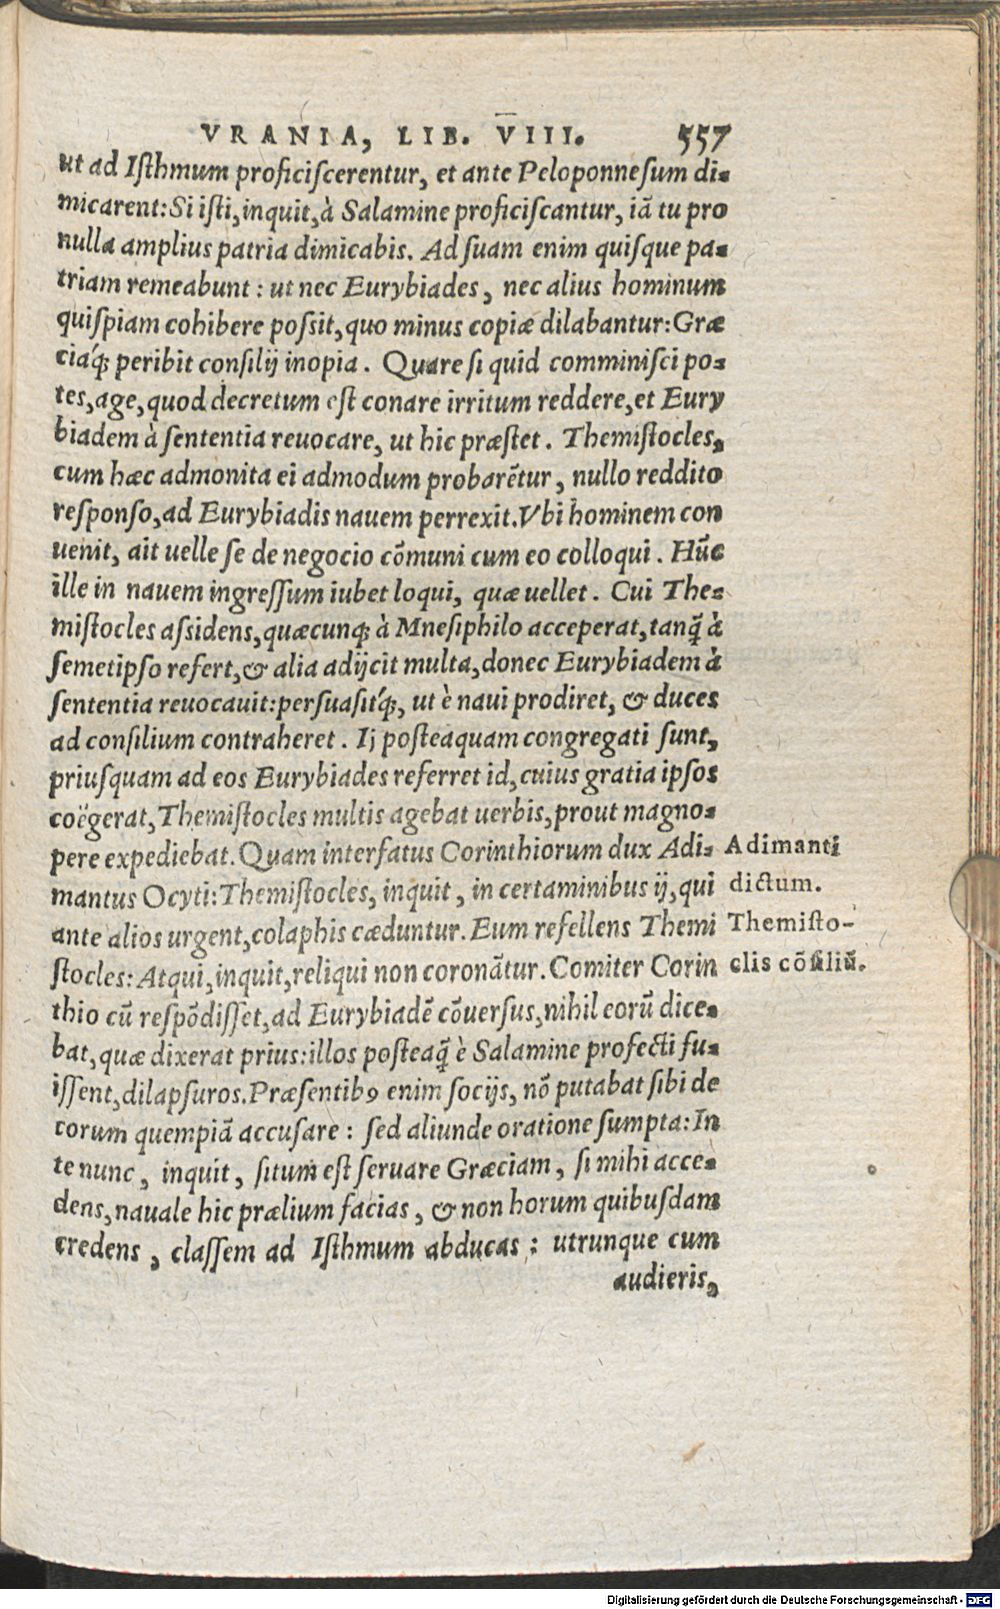 VRANIA, LIB. VIII. 557
ut ad Iſthmum proficiſcerentur, et ante Peloponneſum di-
micarent: Si iſti, inquit, à Salamine proficiſcantur, iã tu pro
nulla amplius patria dimicabis. Ad ſuam enim quiſque pa-
triam remeabunt: ut nec Eurybiades, nec alius hominum
quiſpiam cohibere poſſit, quo minus copiæ dilabantur: Græ
ciáq́; peribit conſilij inopia. Quare ſi quid comminiſci po-
tes, age, quod decretum eſt conare irritum reddere, et Eury
biadem à ſententia reuocare, ut hic præſtet. Themiſtocles,
cum hæc admonita ei admodum probarẽtur, nullo reddito
reſponſo, ad Eurybiadis nauem perrexit. Vbi hominem con
uenit, ait uelle ſe de negocio cõmuni cum eo colloqui. Hũc
ille in nauem ingreſſum iubet loqui, quæ uellet. Cui The-
miſtocles aſsidens, quæcunq; à Mneſiphilo acceperat, tanq̃ à
ſemetipſo refert, & alia adijcit multa, donec Eurybiadem à
ſententia reuocauit: perſuaſitq́;, ut è naui prodiret, & duces
ad conſilium contraheret. Ij poſteaquam congregati ſunt,
priuſquam ad eos Eurybiades referret id, cuius gratia ipſos
coëgerat, Themiſtocles multis agebat uerbis, prout magno-
pere expediebat. Quam interfatus Corinthiorum dux Adi-
mantus Ocyti: Themiſtocles, inquit, in certaminibus ij, qui
ante alios urgent, colaphis cæduntur. Eum refellens Themi
ſtocles: Atqui, inquit, reliqui non coronãtur. Comiter Corin
thio cũ reſpõdiſſet, ad Eurybiadẽ cõuerſus, nihil eorũ dice-
bat, quæ dixerat prius: illos poſteaq̃ è Salamine profecti fu-
iſſent, dilapſuros. Præſentibꝰ enim ſocijs, nõ putabat ſibi de
corum quempiã accuſare: ſed aliunde oratione ſumpta: In
te nunc, inquit, ſitum eſt ſeruare Græciam, ſi mihi acce-
dens, nauale hic prælium facias, & non horum quibuſdam
credens, claſſem ad Iſthmum abducas: utrunque cum
audieris,
Adimanti
dictum.
Themiſto-
clis cõſiliũ.
Digitalisierung gefördert durch die Deutsche Forschungsgemeinschaft - DFG